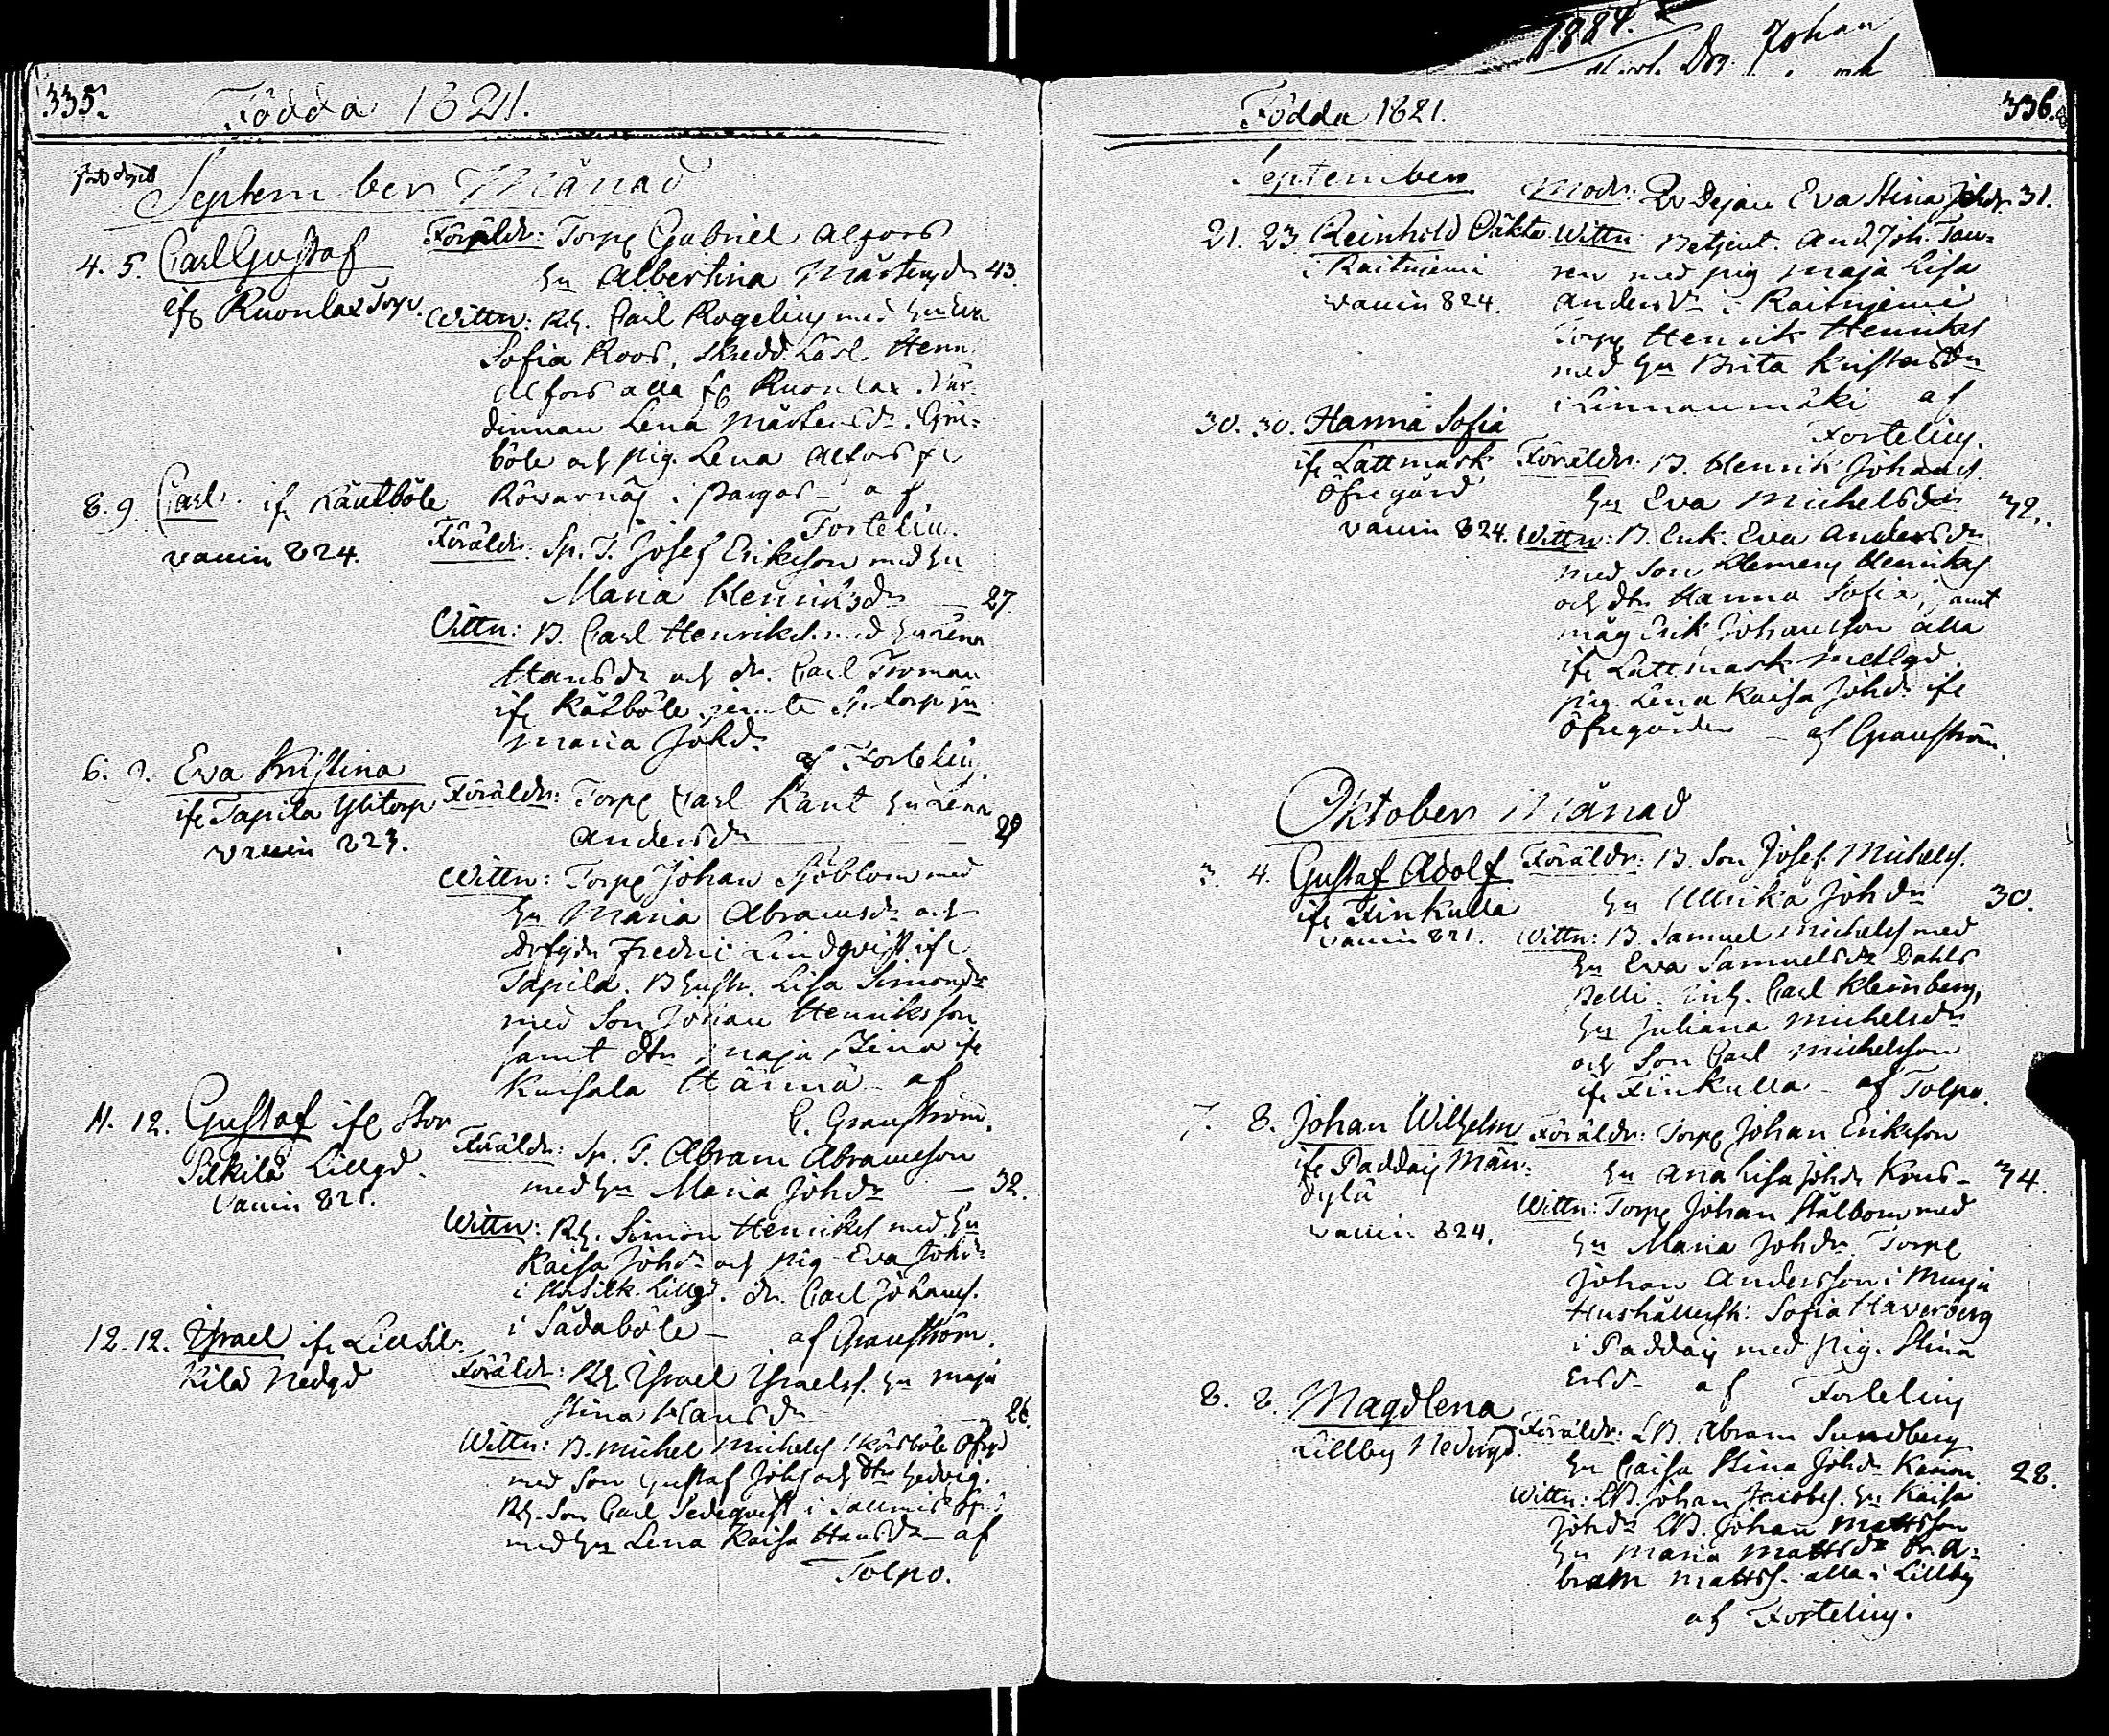 335.
Födda 1821.
September Månad
4. 5. Carl Gustaf
ifr Ruonlax Torp.
Föräldr: Torp. Gabriel Alfors
hu Albertina Mårtensdr 43.
Wittn: Rh. Carl Rogelius med hu Eva
Sofia Roos, Skredd. Lärl. Henr.
Alfors alla fr Ruonlax. Vär-
dinnan Lena Mårtensdr. Grä-
böle och pig. Lena Alfors fr
Rövarnäs i Pargas - af
Fortelin.
8. 9. Carl. if. Räutböle
vaccin 824.
Föräldr: Sp. T. Josef Erikson med hu
Maria Henriksdr 27.
Wittn: B. Carl Henriks. med hu Lena
Hansdr och dr. Carl Froman
ifr Räfböle jemte Sp. torp hu
Maria Johdr
af Fortelius.
6. Eva Kristina
ifr Tapila Ylitorp
vaccin 823.
Föräldr: Torp. Carl Kant hu Lena
Andersdr 29
Wittn: Torp. Johan Sjöblom med
hu Maria Abramsdr och
Fredric Lindqvist ifr
Tapila. B hustr. Lisa Simonsdr
med Son Johan Henriksson
samt dtr Maja Stina ifr
af
C. Granström.
11. 12. Gustaf ifr Stor
Silkilä Lillgd.
vaccin 821.
Föräldr: Sp. T. Abram Abramsson
med hu Maria Johdr 32.
Wittn: Rh. Simon Henriks med hu
Kaisa Johdr och pig Eva Johdr
i St. Silk. Lillgd. dr. Carl Johans.
i Sådaböle - af Granström.
12. 12. Israel ifr Lill Sil-
kilä Nedgd
Föräldr: Rh Israel Israels. hu Maja
Stina Hansdr 26.
Wittn: B. Michel Michels Skörböle Öfrgd
med Son Gustaf Johs och dtr Hedvig.
Rh. Son Carl Sedeqvist i
med hu Lena Kaisa Hansdr - af
Tolpo.
336.
Födda 1821.
September
Modr: Qv Dejan Eva Stina Johdr 31.
21. 23 Reinhold Oäkta
i Raitniemi
vaccin 824.
Wittn: Betjent. And Joh. Tam-
ren med pig Maja Lisa
Andersdr i Raitniemi
Torp. Henrik Henriks
med hu Brita Kristersdr
i Linnanmäki af
Fortelius.
30. 30. Hanna Sofia
ifr Lattmark
Öfregård
vaccin 824.
Föräldr: B. Henrik Johans.
hu Eva Michelsdr 32.
Wittn: B. Enk. Eva Andersdr
med Son Klemens Henriks
och dtr Hanna Sofia, samt
måg Erik Johansson alla
ifr Lattmark Mellgd.
pig. Lena Kaisa Johdr ifr
Öfregården - af Granström.
Oktober Månad
3. 4. Gustaf Adolf
ifr Finkulla
vaccin 821.
Föräldr: B. Son Josef Michels.
hu Ullrika Johdr 30.
Wittn: B. Samuel Michels med
hu Eva Samuelsdr Dahls
Pelli. Inh. Carl Kleinberg,
hu Juliana Michelsdr
och Son Carl Michelsson
ifr Finkulla - af Tolpo.
7. 8. Johan Wilhelm
ifr Paddais Män-
dylä
vaccin 824.
Föräldr: Torp. Johan Erikson
hu Ana Lisa Johdr Krus - 34.
Wittn: Torp. Johan Stålbom med
hu Maria Johdr Torp.
Johan Andersson i Murja
Hushållersk: Sofia Haverberg
i Paddais med pig. Stina
Ersdr af Fortelius
8. 8. Magdlena
Lillby Nedergd.
Föräldr: LB. Abram Sundberg
hu Caisa Stina Johdr 28.
Wittn: LB. Johan Jacobs. hu Kaisa
Johdr LB. Johan Mattsson
hu Maria Mattsdr dr. A-
bram Matts. alla i Lillby
af Fortelius.
1884.
Johan